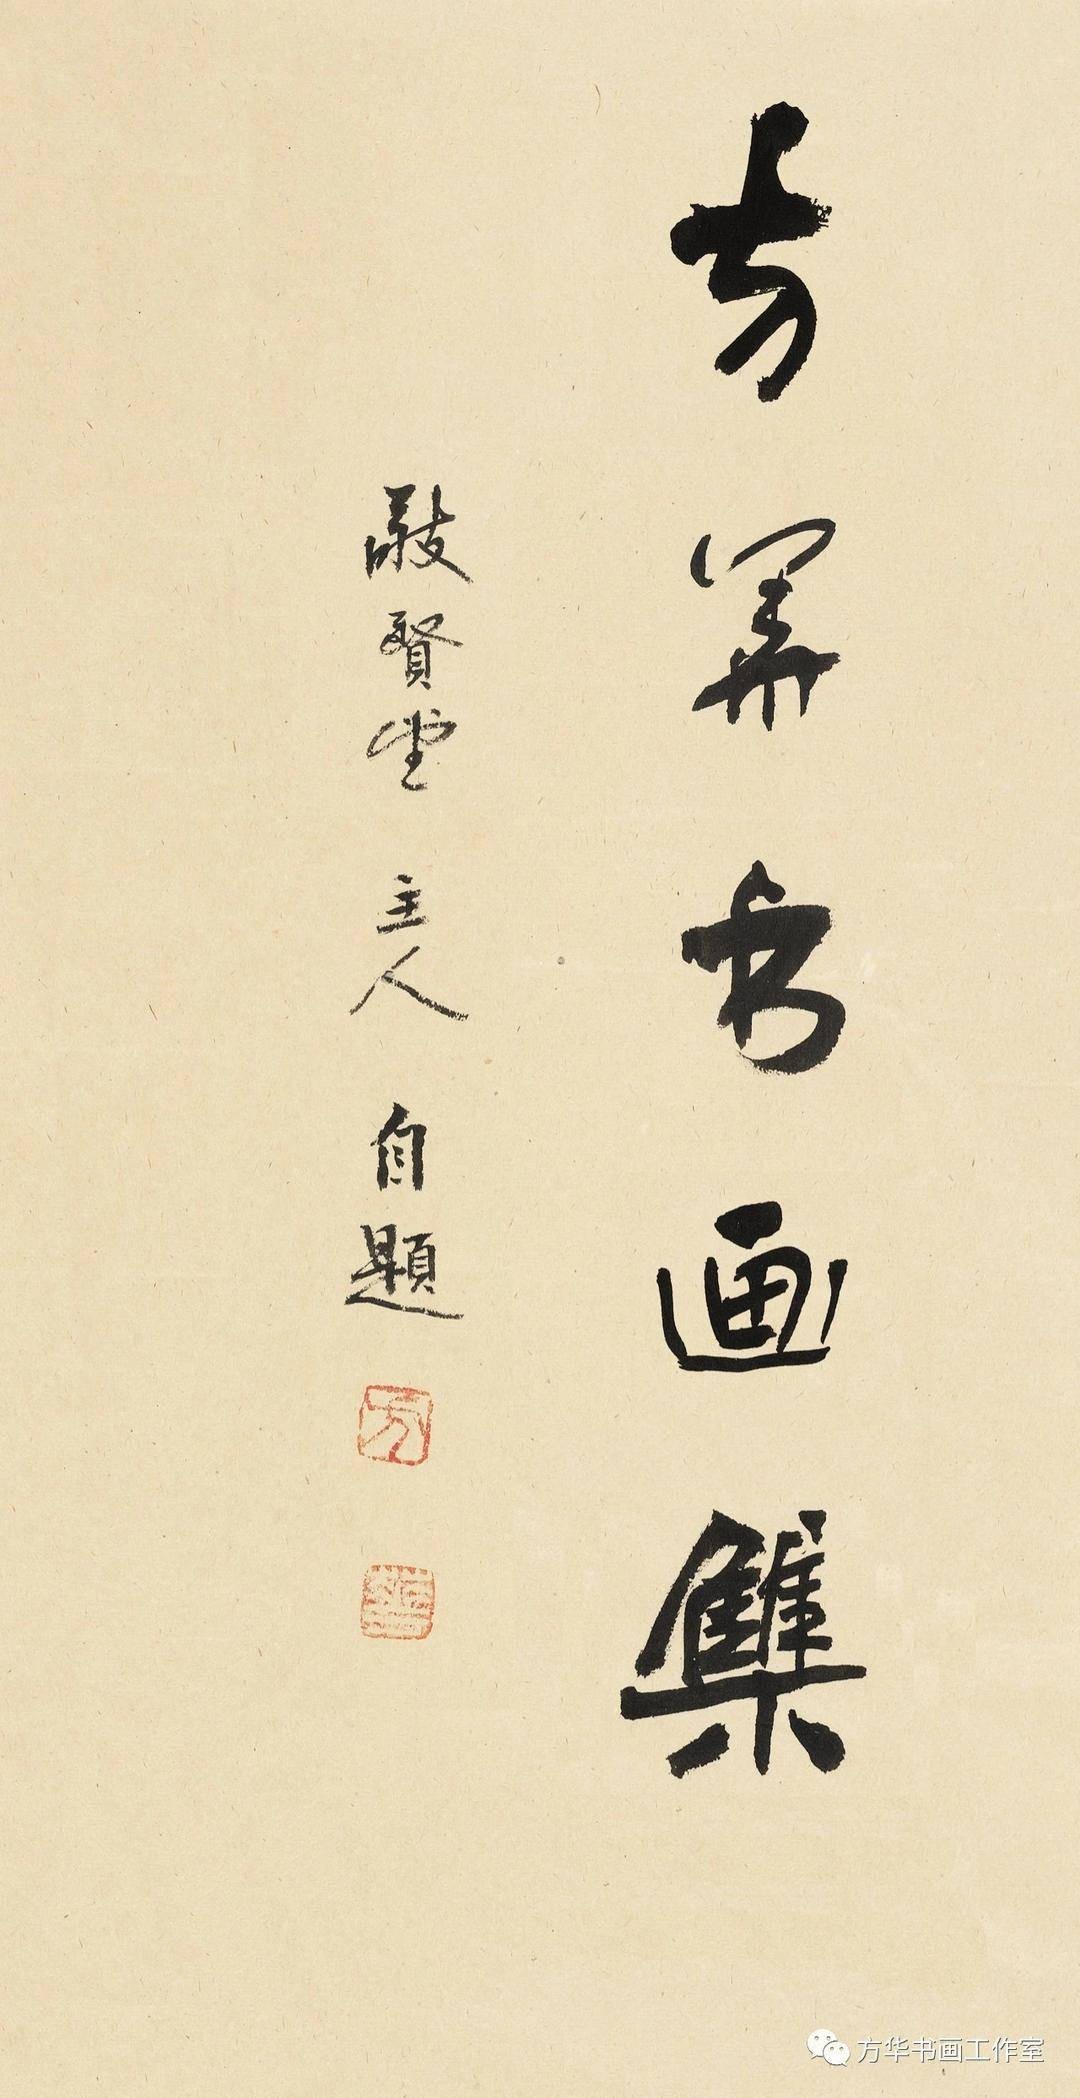 方華书画集
敬賢堂主人自題
方
方华书画工作室